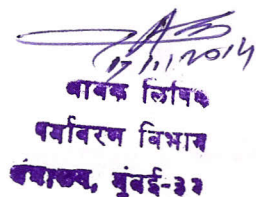 17/11/2014
वाचक लिपिक
पर्यावरण विभाग
मंत्रालय, मुंबई-३२